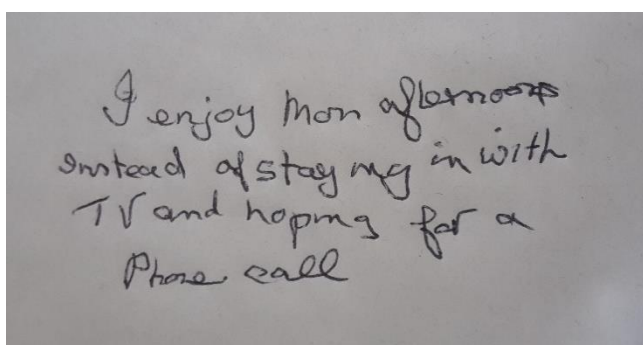 I enjoy Mon afternoons
instead of staying in with
TV and hoping for a
Phone call